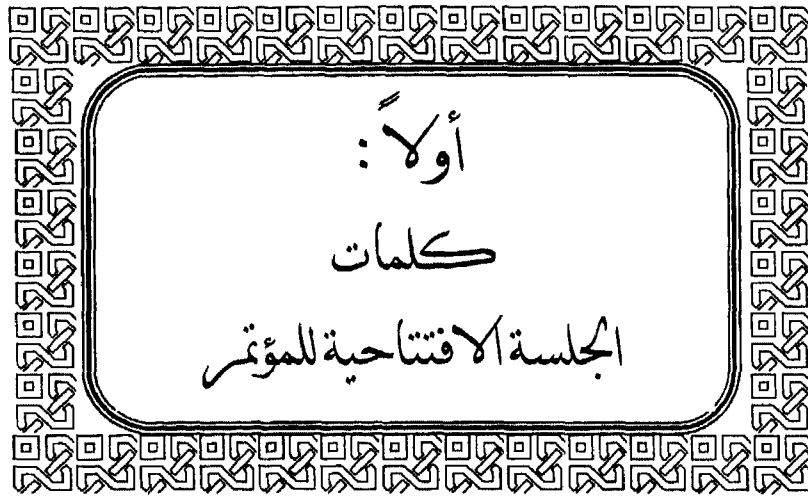 أولاً :
كلمات
الجلسة الافتتاحية للمؤتمر